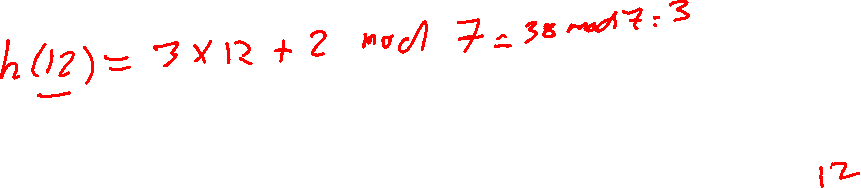 h(12) = 3 x 12 + 2 mod 7 = 38 mod 7 = 3
12